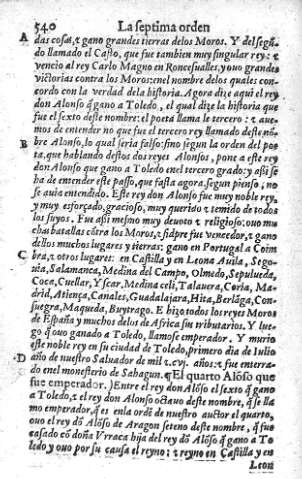 540 La septima orden
A das cosas, τ gano grandes tierras delos Moros. Y del segũ
do llamado el Casto, que fue tambien muy singular rey: τ
vencio al rey Carlo Magno en Roncesualles, y ouo grandes
victorias contra los Moros: en el nombre delos quales con-
cordo con la verdad dela historia. Agora dize aqui el rey
don Alonso q̃ gano a Toledo, el qual dize la historia que
fue el sexto deste nombre: el poeta lama le tercero: τ aue-
mos de entender no que fue el tercero rey llamado deste nõ-
B bre Alonso, lo qual seria falso: sino segun la orden del poe
ta, que hablando destos dos reyes Alonsos, pone a este rey
don Alonso que gano a Toledo enel tercero grado: y assi se
ha de entender este passo, que fasta agora, segun pienso, no
se auia entendido. Este rey don Alonso fue muy noble rey,
y muy esforçado, gracioso, muy querido τ temido de todos
los suyos. Fue assi mesmo muy deuoto τ religioso: ouo mu
chas batallas cõtra los Moros, τ siẽpre fue vencedor, τ gano
dellos muchos lugares y tierras: gano en Portugal a Coim
C bra, τ otros lugares: en Castilla y en Leona Auila, Sego-
uia, Salamanca, Medina del Campo, Olmedo, Sepulueda,
Coca, Cuellar, Yscar, Medina celi, Talauera, Coria, Ma-
drid, Atiença, Canales, Guadalajara, Hita, Berlãga, Con-
suegra, Maqueda, Buytrago. E hizo todos los reyes Moros
de España y muchos delos de Africa sus tributarios. Y lue-
go q̃ ouo ganado a Toledo, llamose emperador. Y murio
este noble rey en su ciudad de Toledo, primero dia de Iulio
D año de nuestro Saluador de mil τ.cvj. años: τ fue enterra-
do enel monesterio de Sahagun. ¶El quarto Alõso que
fue emperador.) Entre el rey don Alõso el sexto q̃ gano
a Toledo, τ el rey don Alonso octauo deste nombre, q̃ se lla
mo emperador, q̃ es enla ordẽ de nuestro auctor el quarto,
ouo el rey dõ Alõso de Aragon seteno deste nombre, q̃ fue
casado cõ doña Vrraca hija del rey dõ Alõso q̃ gano a To
ledo y ouo por su causa el reyno: τ reyno en Castilla y en
Leon